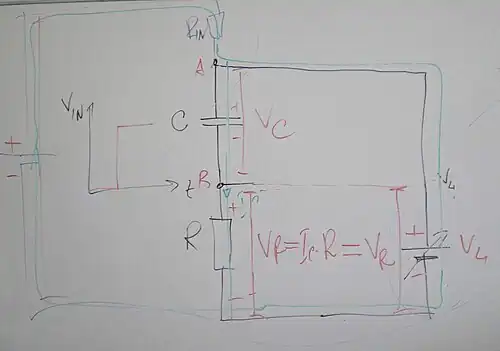 RIN
A
+
VIN
C
+
VC
-
+
-
t
B
V4
+
R
VR=Ic·R=VR
+
V4
-
-